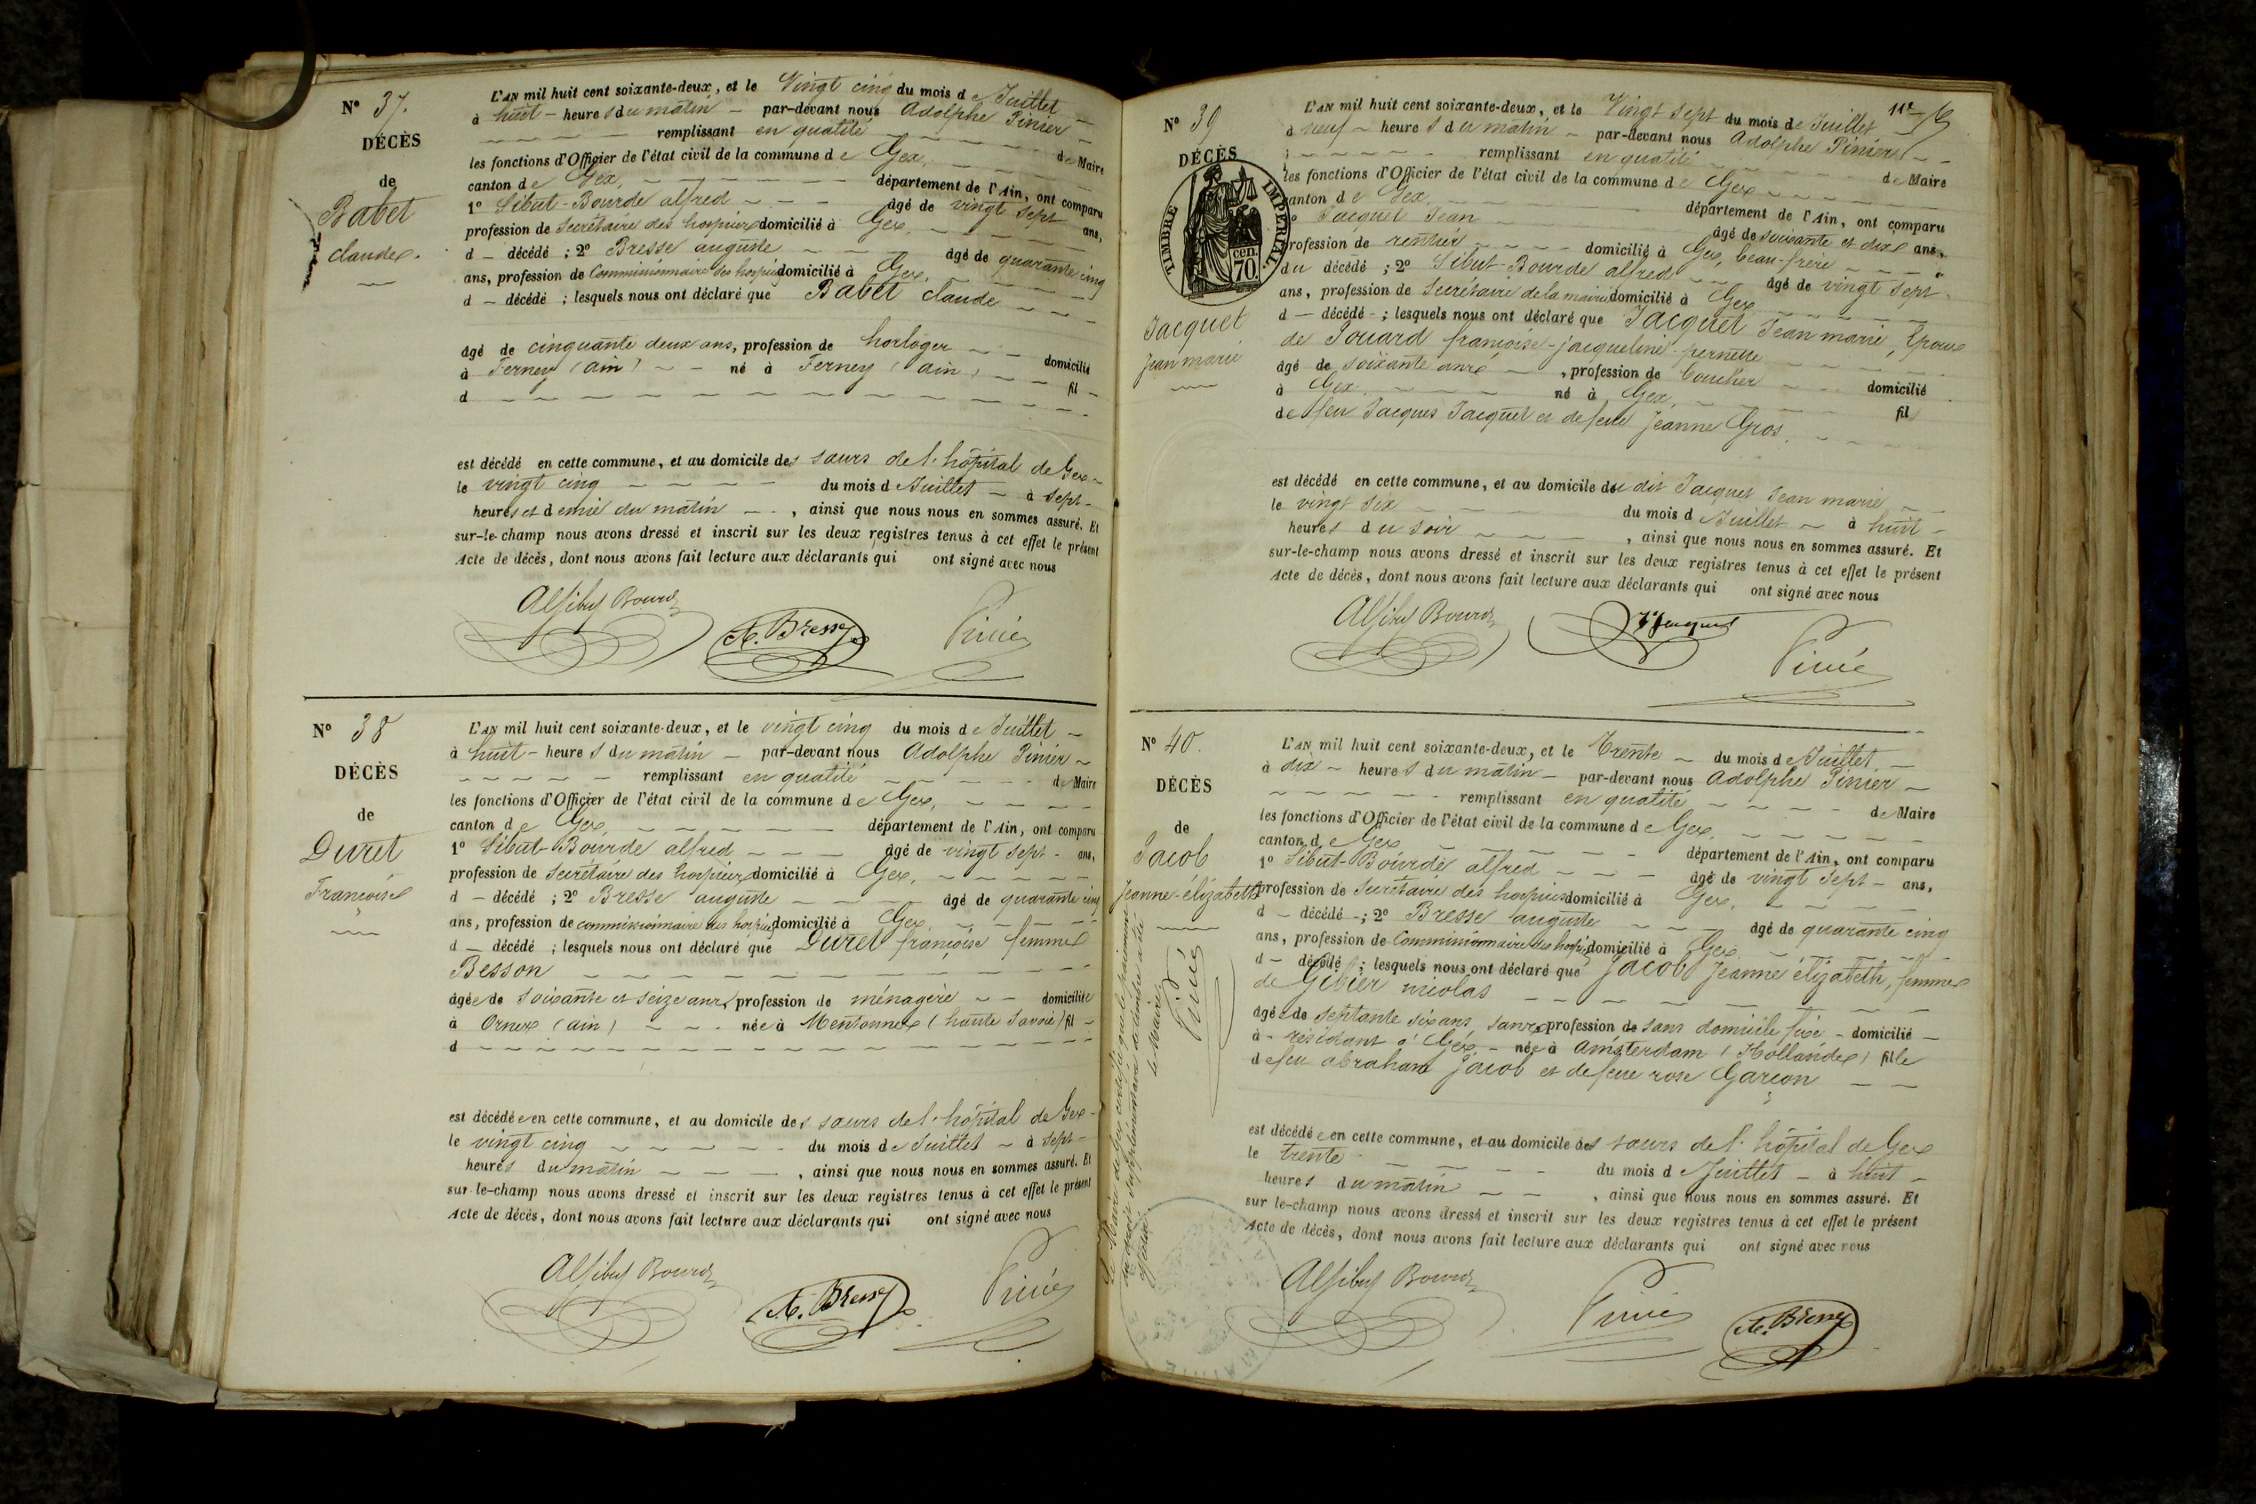 N° 37.
DÉCÈS
de
Babet
claude.
L'AN mil huit cent soixante-deux, et le Vingt cinq du mois de Juillet
à huit heures du matin par-devant nous Adolphe Pinier
remplissant en qualité de Maire
les fonctions d'Officier de l'état civil de la commune de Gex,
canton de Gex, département de l'Ain, ont comparu
1° Sibut-Bourde alfred âgé de vingt sept ans,
profession de Secrétaire des hospices domicilié à Gex,
d décédé ; 2° Bresse auguste âgé de quarante cinq
ans, profession de Commissionnaire des hospices domicilié à Gex,
d décédé ; lesquels nous ont déclaré que Babet claude
âgé de cinquante deux ans, profession de horloger domicilié
à Ferney (ain) né à Ferney (ain) fil
d
est décédé en cette commune, et au domicile des sœurs de l'hôpital de Gex
le vingt cinq du mois de Juillet à sept
heures et demie du matin , ainsi que nous nous en sommes assuré. Et
sur-le-champ nous avons dressé et inscrit sur les deux registres tenus à cet effet le présent
Acte de décès, dont nous avons fait lecture aux déclarants qui ont signé avec nous
A Sibut Bourde
A. Bresse
Pinier
N° 38
DÉCÈS
de
Duret
Françoise
L'AN mil huit cent soixante-deux, et le vingt cinq du mois de Juillet
à huit heures du matin par-devant nous Adolphe Pinier
remplissant en qualité de Maire
les fonctions d'Officier de l'état civil de la commune de Gex,
canton de Gex département de l'Ain, ont comparu
1° Sibut-Bourde alfred âgé de vingt sept ans,
profession de Secrétaire des hospices domicilié à Gex,
d décédé ; 2° Bresse auguste âgé de quarante cinq
ans, profession de commissionnaire des hospices domicilié à Gex,
d décédé ; lesquels nous ont déclaré que Duret françoise femme
Besson
âgée de soixante et seize ans, profession de ménagère domiciliée
à Ornex (ain) née à Mentonnex (haute Savoie) fil
d
est décédée en cette commune, et au domicile des sœurs de l'hôpital de Gex
le vingt cinq du mois de Juillet à sept
heures du matin , ainsi que nous nous en sommes assuré. Et
sur-le-champ nous avons dressé et inscrit sur les deux registres tenus à cet effet le présent
Acte de décès, dont nous avons fait lecture aux déclarants qui ont signé avec nous
A Sibut Bourde
A. Bresse
Pinier
N° 39
DÉCÈS
TIMBRE IMPÉRIAL.
cen.
70.
Jacquet
Jean marie
L'AN mil huit cent soixante-deux, et le Vingt sept du mois de Juillet
à neuf heures du matin par-devant nous Adolphe Pinier
remplissant en qualité de Maire
les fonctions d'Officier de l'état civil de la commune de Gex
canton de Gex département de l'Ain, ont comparu
1° Jacquet Jean âgé de soixante et dix ans,
profession de rentier domicilié à Gex, beau-frère
du décédé ; 2° Sibut-Bourde alfred âgé de vingt sept
ans, profession de Secrétaire de la mairie domicilié à Gex
d décédé ; lesquels nous ont déclaré que Jacquet Jean marie, Epoux
de Jouard françoise-jacqueline-pernette
âgé de soixante ans , profession de boucher domicilié
à Gex né à Gex, fil
de feu Jacques Jacquet et de feue Jeanne Gros.
est décédé en cette commune, et au domicile du dit Jacquet Jean marie
le vingt six du mois de Juillet à huit
heures du soir , ainsi que nous nous en sommes assuré. Et
sur-le-champ nous avons dressé et inscrit sur les deux registres tenus à cet effet le présent
Acte de décès, dont nous avons fait lecture aux déclarants qui ont signé avec nous
A Sibut Bourde
Jacquet
Pinier
N° 40.
DÉCÈS
de
Jacob
Jeanne-élizabeth
L'AN mil huit cent soixante-deux, et le Trente du mois de Juillet
à dix heures du matin par-devant nous Adolphe Pinier
remplissant en qualité de Maire
les fonctions d'Officier de l'état civil de la commune de Gex,
canton de Gex département de l'Ain, ont comparu
1° Sibut-Bourde alfred âgé de vingt sept ans,
profession de Secrétaire des hospices domicilié à Gex,
d décédé ; 2° Bresse auguste âgé de quarante cinq
ans, profession de Commissionnaire des hospices domicilié à Gex
d décédé ; lesquels nous ont déclaré que Jacob Jeanne élizabeth, femme
de Gibier nicolas
âgée de septante six ans, sans profession de sans domicile fixe domicilié
à résidant à Gex née à Amsterdam (Hollande) fille
de feu abraham Jacob et de feue rose Garçon
est décédée en cette commune, et au domicile des sœurs de l'hôpital de Gex
le trente du mois de Juillet à huit
heures du matin , ainsi que nous nous en sommes assuré. Et
sur le-champ nous avons dressé et inscrit sur les deux registres tenus à cet effet le présent
Acte de décès, dont nous avons fait lecture aux déclarants qui ont signé avec nous
A Sibut Bourde
Pinier
A. Bresse
Le Maire de Gex certifie que le
Le Maire
Pinier
MAIRIE